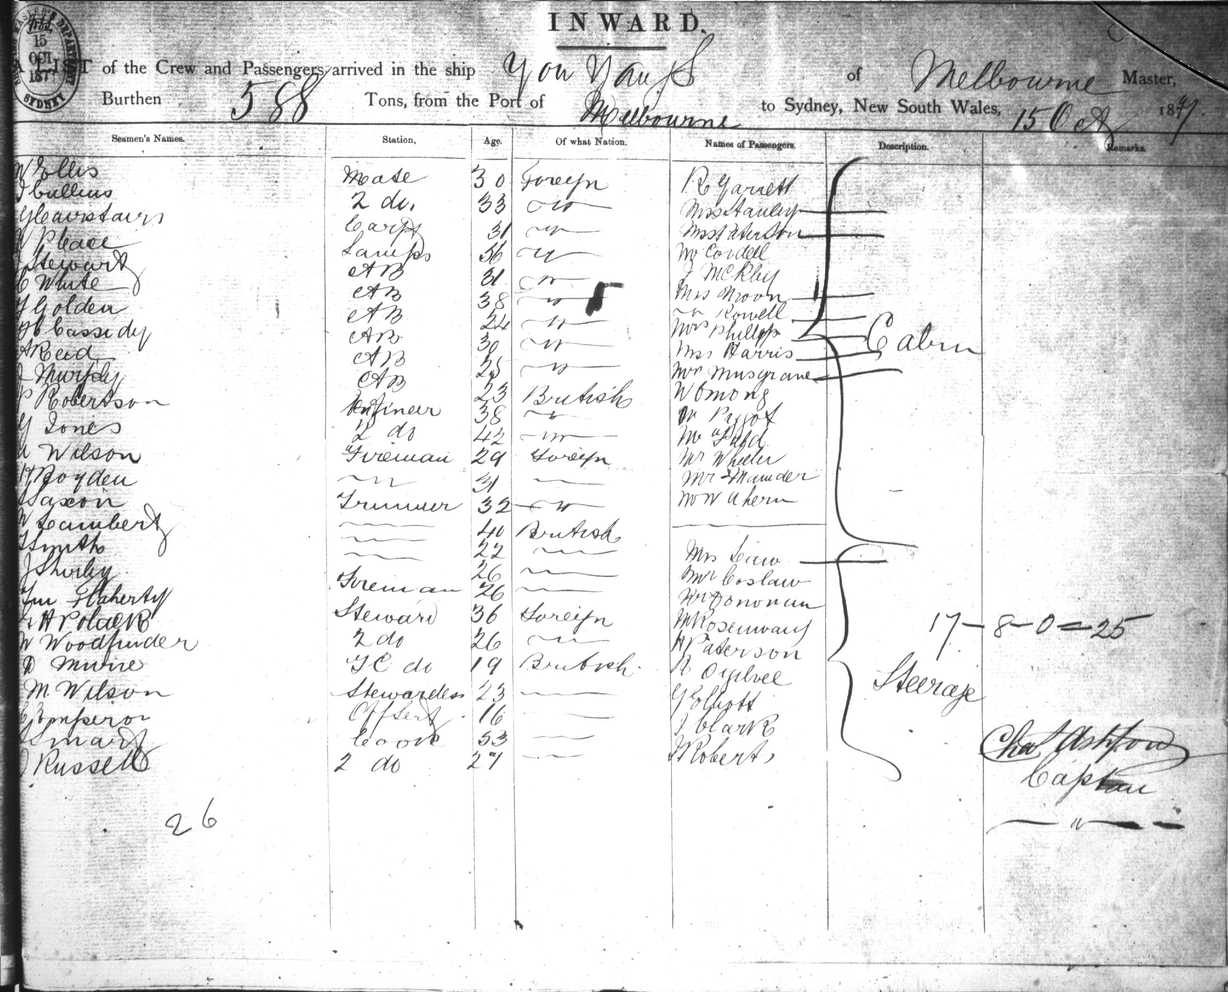 INWARD.
15 OCT 187
SYDNEY
A LIST of the Crew and Passengers arrived in the ship You Yangs of Melbourne Master,
Burthen 588 Tons, from the Port of Melbourne to Sydney, New South Wales, 15 Oct 187
Seamen's Names. Station, Age. Of what Nation. Names of Passengers. Description. Remarks.
W Ellis Mate 30 Foreign R Garrett
J Cullins 2 do. 33 Mrs Hanley
G Cairstairs Carp 31
Place Lamps 36 Mr Cordell
Stewart AB 31 J McKay
C White AB 38 Mrs Moon
J Golden AB 24 Rowell
Cassidy AB 30 Mrs Phillips
A Reid AB 25 Miss Harris
Murphy AB 23 British Mr Musgrave
P Robertson Engineer 38
G Jones 2 do 42 Dr Pigot
Wilson Fireman 29 Foreign
Boyden 31 Mr Wheeler
Saxon Trimmer 32 Mr Maunder
Lambert 40 British Ahern
Smith 22
J Shirley 26 Mrs Law
Flaherty Fireman 26 Mr Coslaw
H Polack Steward 36 Foreign Mr Donovan
W Woodfinder 2 do 26 M Rosenwarg
D Munro FC do 19 British H Paterson
M Wilson Stewardess 23 R Ogilvee
Emperor 16 G Elliott
Smart Cook 53 J Clark
J Russell 2 do 27 J Roberts
Cabin
17-8-0=25
Steerage
Chas Ashford
Captain
26